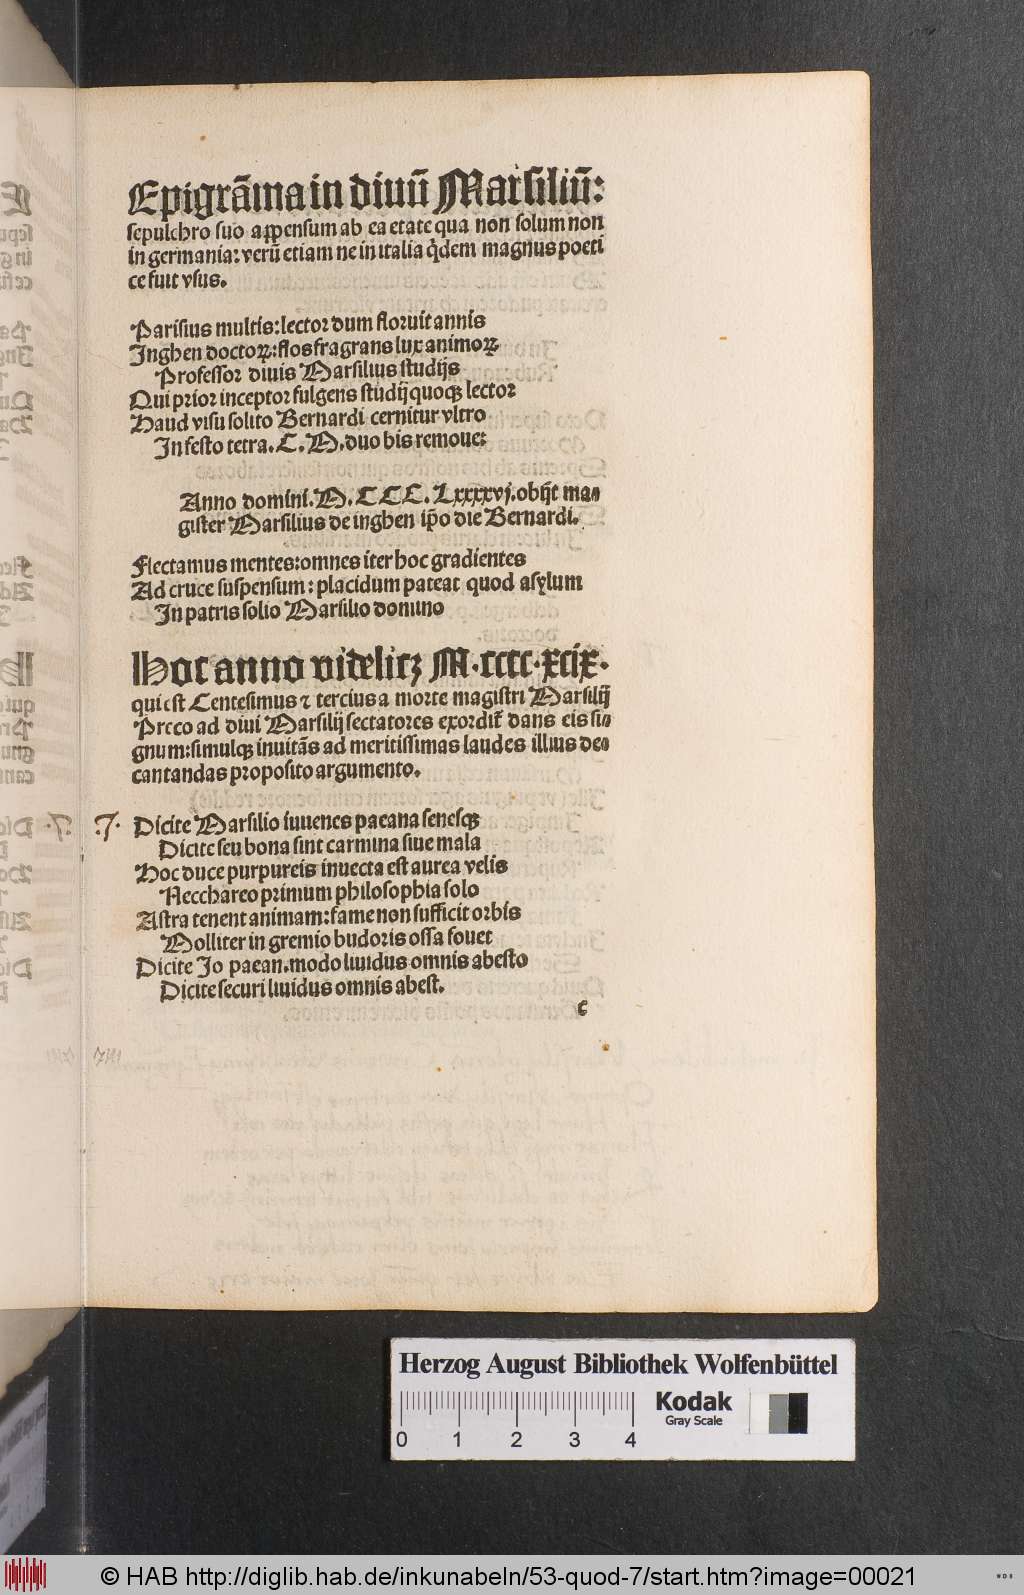 Epigrãma in diuũ Marsiliũ:
sepulchro suo appensum ab ea etate qua non solum non
in germania: verũ etiam ne in italia q̃dem magnus poeti
ce fuit vsus.
Parisius multis: lector dum floruit annis
Inghen doctoꝝ: flos fragrans lux animoꝝ
Professor diuis Marsilius studijs
Qui prior inceptor fulgens studij quoqꝫ lector
Haud visu solito Bernardi cernitur vltro
In festo tetra. C. M. duo bis remoue:
Anno domini. M. CCC. Lxxxxvj. obijt ma⸗
gister Marsilius de inghen ip̃o die Bernardi.
Flectamus mentes: omnes iter hoc gradientes
Ad cruce suspensum: placidum pateat quod asylum
In patris solio Marsilio domino
Hoc anno videlicꝫ M.cccc.xcix.
qui est Centesimus ⁊ tercius a morte magistri Marsilij
Preco ad diui Marsilij sectatores exordit᷑ dans eis si⸗
gnum: simulqꝫ inuitãs ad meritissimas laudes illius de⸗
cantandas proposito argumento.
.7. .7. Dicite Marsilio iuuenes paeana senesqꝫ
Dicite seu bona sint carmina siue mala
Hoc duce purpureis inuecta est aurea velis
Necchareo primum philosophia solo
Astra tenent animam: fame non sufficit orbis
Molliter in gremio budoris ossa fouet
Dicite Jo paean. modo liuidus omnis abesto
Dicite securi liuidus omnis abest.
c
Herzog August Bibliothek Wolfenbüttel
Kodak
Gray Scale
0 1 2 3 4
© HAB http://diglib.hab.de/inkunabeln/53-quod-7/start.htm?image=00021